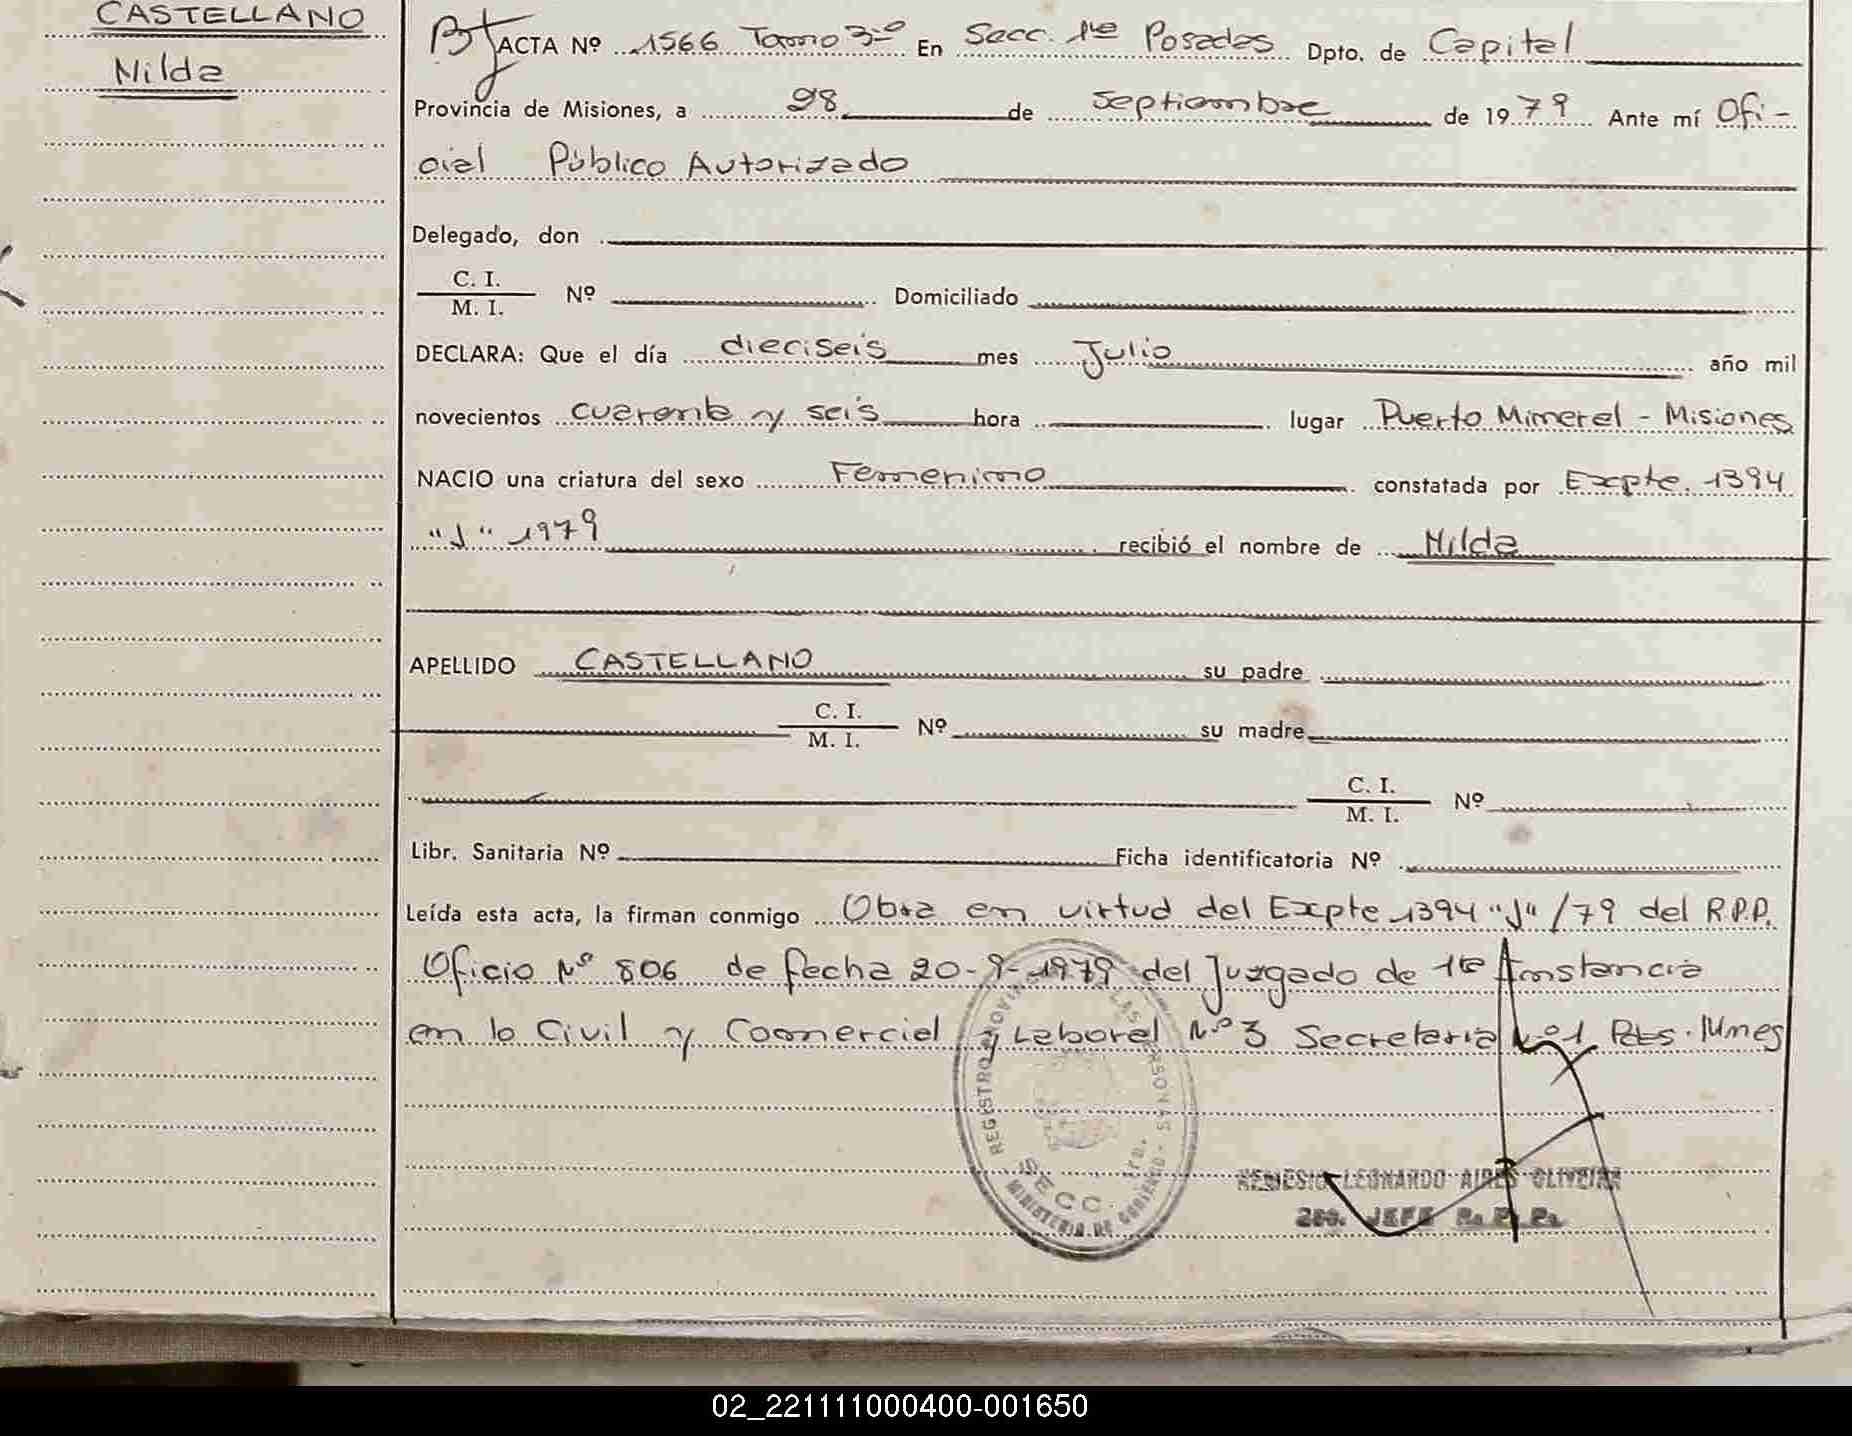 CASTELLANO
Nilda
ACTA Nº 1566 Tomo 3º En Secc. 1ra Posadas Dpto. de Capital
Provincia de Misiones, a 28 de septiembre de 1979 Ante mí Ofi-
cial Público Autorizado
Delegado, don
C. I.
M. I. Nº Domiciliado
DECLARA: Que el día dieciseis mes Julio año mil
novecientos cuarenta y seis hora lugar Puerto Mineral - Misiones
NACIO una criatura del sexo Femenino constatada por Expte. 1394
"J" 1979 recibió el nombre de Nilda
APELLIDO CASTELLANO su padre
C. I.
M. I. Nº su madre
C. I.
M. I. Nº
Libr. Sanitaria Nº Ficha identificatoria Nº
Leída esta acta, la firman conmigo Obra en virtud del Expte 1394 "J" /79 del R.P.P.
Oficio Nº 806 de fecha 20-9-1979 del Juzgado de 1ra Instancia
en lo Civil y Comercial y Laboral Nº 3 Secretaria Nº 1 Pdas. Mnes
REGISTRO PROVINCIAL LAS PERSONAS
SECC. 1RA.
MINISTERIO DE GOBIERNO
NEMESIO LEONARDO AIRES OLIVEIRA
2do. JEFE R. P. P.
02_221111000400-001650